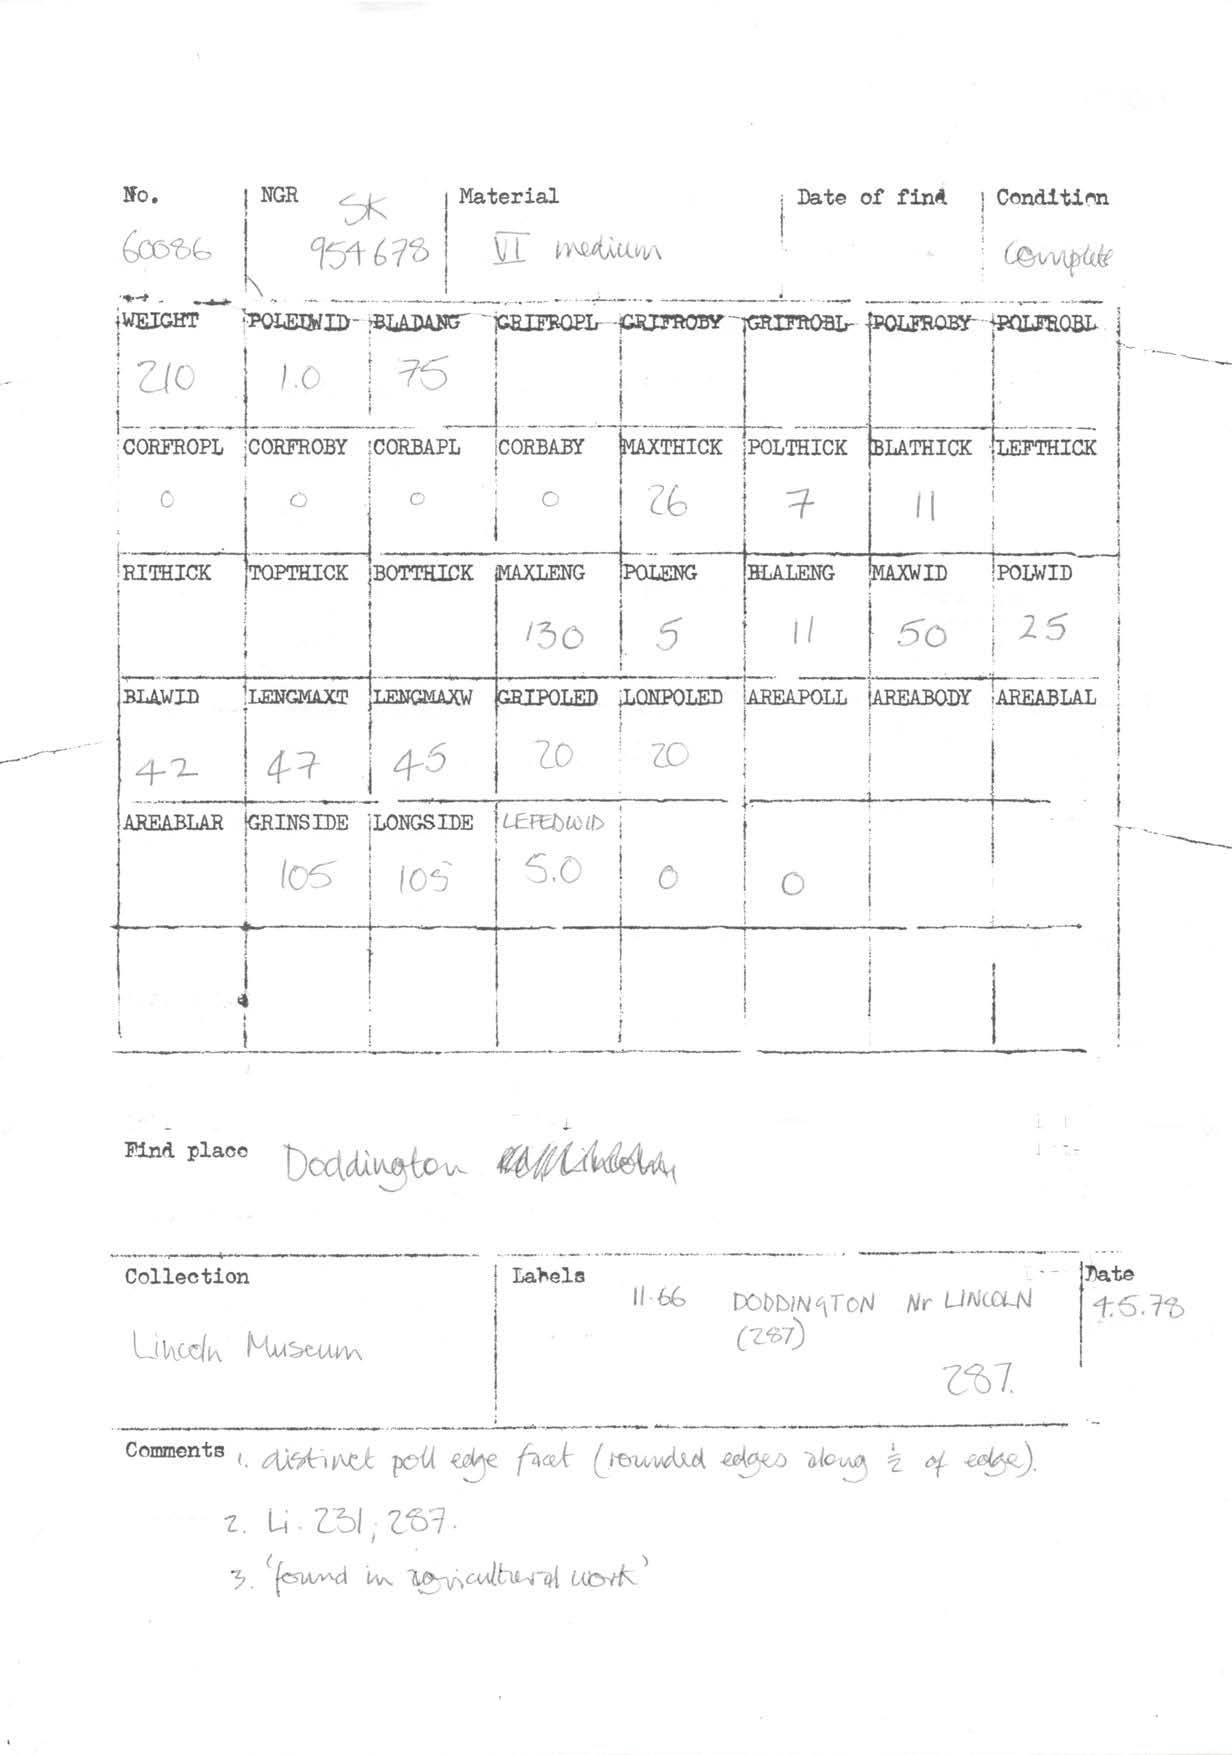 No. NGR Material Date of find Condition
SK
60086 954678 VI medium complete
WEIGHT POLEDWID BLADANG GRIFROPL GRIFROBY GRIFROBL POLFROBY POLFROBL
210 1.0 75
CORFROPL CORFROBY CORBAPL CORBABY MAXTHICK POLTHICK BLATHICK LEFTHICK
0 0 0 0 26 7 11
RITHICK TOPTHICK BOTTHICK MAXLENG POLENG BLALENG MAXWID POLWID
130 5 11 50 25
BLAWID LENGMAXT LENGMAXW GRIPOLED LONPOLED AREAPOLL AREABODY AREABLAL
42 47 45 20 20
AREABLAR GRINSIDE LONGSIDE LEFEDWID
105 105 5.0 0 0
Find place Doddington
Collection Labels Date
11.66 DODDINGTON Nr LINCOLN 4.5.78
(287)
Lincoln Museum
287.
Comments 1. distinct poll edge facet (rounded edges along ½ of edge).
2. Li. 231; 287.
3. 'found in agricultural work'